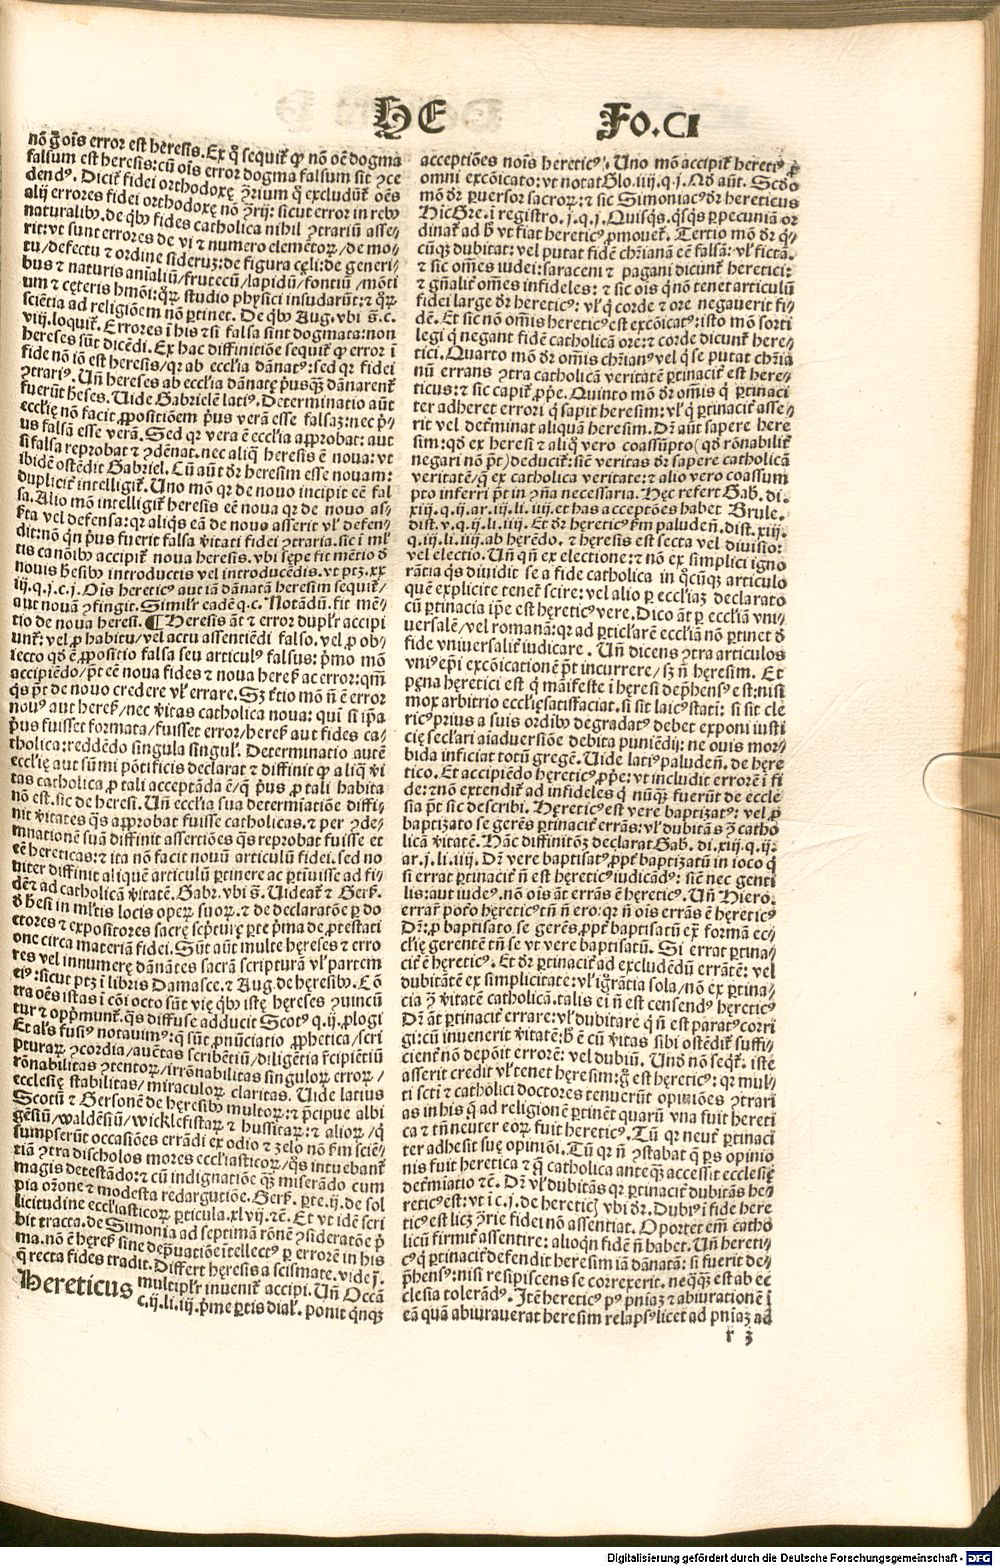 HE Fo.CI
nō g̃ oīs error est heresis. Ex q̊ sequit̃ ꝙ nō oē dogma
falsum est heresis: cū oīs error dogma falsum sit ꝛce
dendꝰ. Dicit̃ fidei orthodoxę ꝯrium q̊ excludūt̃ oēs
alij errores fidei orthodoxę nō ꝯrij: sicut error in rebꝰ
naturalibꝰ. de q̄bꝰ fides catholica nihil ꝯtrariū asse⸗
rit: vt sunt errores de vi ⁊ numero elemētoꝝ/ de mo⸗
tu/ defectu ⁊ ordine sideruꝫ: de figura cęli: de generi⸗
bus ⁊ naturis aīaliū/ frutecū/ lapidū/ fontiū/ mōti
um ⁊ cęteris hmōi: q̄ꝝ studio physici insudarūt: ⁊ q̄ꝝ
sciētia ad religiōem nō ꝑtinet. De q̄bꝰ Aug. vbi s̄. c.
viij. loquit̃. Errores ī his etsi falsa sint dogmata: non
hereses sūt dicēdi. Ex hac diffinitiōe sequit̃ ꝙ error ī
fide nō iō est heresis/ qꝛ ab ecclīa dānatꝰ: sed qꝛ fidei
ꝯtrariꝰ. Uñ hereses ab ecclīa dānatę pꝰusq̄ꝫ dānarent̃
fuerūt hęses. Uide Gabrielē latiꝰ. Determinatio aūt
ecclīę nō facit ꝓpositiōem pꝰus verā esse falsaꝫ: nec pꝰ⸗
us falsā esse verā. Sed qꝛ vera ē ecclīa aꝓprobat: aut
si falsa reprobat ⁊ ꝯdēnat. nec aliq̄ heresis ē noua: vt
ibidē ostēdit Gabriel. Cū aūt dr̄ heresim esse nouam:
dupliciť intelligit̃. Uno mō qꝛ de nouo incipit eē fal
sa. Alio mō intelligit̃ heresis eē noua qꝛ de nouo as⸗
s̃ta vel defensa: qꝛ aliqs eā de nouo asserit vl̓ defen⸗
dit: nō qñ pꝰus fuerit falsa v̓itati fidei ꝯtraria. sic ī ml̓
tis canōibꝰ accipit̃ noua heresis. vbi sępe fit mētio d̓
nouis h̓esibꝰ introductis vel introducēdis. vt ptꝫ. xx
iij. q. j. c. j. Oīs hereticꝰ aut iā dānatā heresim sequit̃/
aut nouā ꝯfingit. Simil̓r eadē q. c. Notādū. fit mē⸗
tio de noua heresi. ¶ Heresis aūt ⁊ error dupl̓r accipi
unt̃: vel ꝓ habitu/ vel actu assentiēdi falso. vel ꝓ ob⸗
iecto qd̓ ē ꝓpositio falsa seu articulꝰ falsus: p̓mo mō
accipiēdo/ pt̄ eē noua fides ⁊ noua heres̃ ac error: qm̄
q̄s pt̄ de nouo credere vl̓ errare. Sꝫ t̓tio mō ñ ē error
nouꝰ aut heres̃/ nec v̓itas catholica noua: qui si ip̄a
pꝰus fuisset formata/ fuisset error/ heres̃ aut fides ca⸗
tholica: reddēdo singula singul̓. Determinatio autē
ecclīę aut sūmi pōtificis declarat ⁊ diffinit ꝙ aliq̄ v̓i
tas catholica ꝓ tali acceptāda ē/ q̄ pꝰus ꝓ tali habita
nō est. sic de heresi. Uñ ecclīa sua determīatiōe diffi⸗
nit v̓itates q̄s aꝓprobat fuisse catholicas. ⁊ per ꝯde⸗
mnationē suā diffinit assertiōes q̄s reprobat fuisse et
eē hereticas: ⁊ ita nō facit nouū articulū fidei. sed no
uiter diffinit aliquē articulū ꝑtinere ac ꝑtinuisse ad fi⸗
dē: ⁊ ad catholicā v̓itatē. Gabr. vbi s̄. Uideat̃ ⁊ Gers̃.
d̓ h̓esi in ml̓tis locis opeꝝ suoꝝ. ⁊ de declaratōe ꝑ do
ctores ⁊ expositores sacrę sc̓pturę ꝑte p̓ma de ꝓtestati
one circa materiā fidei. Sūt aūt multe hęreses ⁊ erro
res vel innumerę dānātes sacrā scripturā vl̓ partem
eiꝰ: sicut ptꝫ ī libris Damasce. ⁊ Aug. de hęresibꝰ. Cō
tra oēs istas ī cōi octo sūt vię q̄bꝰ istę hęreses ꝯuincū
tur ⁊ opp̓munt̃. q̄s diffuse adducit Scotꝰ q. ij. ꝓlogi
Et al̓s fusiꝰ notauimꝰ: q̄ sūt ꝓnūciatio ꝓphetica/ scri
pturaꝝ ꝯcordia/ auc̄tas scribētiū/ diligētia r̓cipiētiū
rōnabilitas ꝯtentoꝝ/ irrōnabilitas singuloꝝ erroꝝ/
ecclesię stabilitas/ miraculoꝝ claritas. Uide latius
Scotū ⁊ Gersonē de hęresibꝰ multoꝝ: ⁊ p̓cipue albi
gēsiū/ waldēsiū/ wicklefistaꝝ ⁊ hussitaꝝ: ⁊ alioꝝ/ q̄
sumpserūt occasiōes errādi ex odio ⁊ zelo nō s̃m sciē⸗
tiā ꝯtra discholos mores ecclīasticoꝝ/ q̄s intuebant̃
magis detestādo: ⁊ cū indignatiōe q̄ꝫ miserādo cum
pia orōne ⁊ modesta redargutiōe. Gers̃. ꝑte. ij. de sol
licitudine ecclīasticoꝝ. ꝑticula. xlvij. ⁊c̄. Et vt idē scri
bit tracta. de Simonia ad septimā rōnē ꝯsideratōe p̓
ma. nō ē heres̃ sine dep̓uatiōe ītellectꝰ ꝑ errorē in his
q̄ recta fides tradit. Differt hęresis a scismate. vide j̄.
Hereticus multipl̓r inuenit̃ accipi. Uñ Occā
c. ij. li. iij. p̓me ꝑtis dial̓. ponit q̄nqꝫ
acceptiōes noīs hereticꝰ. Uno mō accipit̃ hereticꝰ ꝓ
omni excōicato: vt notat Glo. iiij. q. j. Qd̓ aūt. Scd̓o
mō dr̄ ꝑuersor sacroꝝ: ⁊ sic Simoniacꝰ dr̄ hereticus
Hic Gre. ī registro. j. q. j. Quisq̄s. q̄sq̄s ꝑ pecuniā or
dinat̃ ad h̓ vt fiat hereticꝰ ꝓmouet̃. Tertio mō dr̄ q̄⸗
cūqꝫ dubitat: vel putat fidē chr̄ianā eē falsā: vl̓ fictā.
⁊ sic om̄es iudei: saraceni ⁊ pagani dicunt̃ heretici:
⁊ gñalit̃ om̄es infideles: ⁊ sic oīs q̄ nō tenet articulū
fidei large dr̄ hereticꝰ: vl̓ q̄ corde ⁊ ore negauerit fi⸗
dē. Et sic nō om̄is hereticꝰ est excōicatꝰ: isto mō sorti
legi q̄ negant fidē catholicā ore: ⁊ corde dicunt̃ here⸗
tici. Quarto mō dr̄ om̄is chr̄ianꝰ vel q̄ se putat chr̄ia
nū errans ꝯtra catholicā veritatē ꝑtinacit̃ est here⸗
ticus: ⁊ sic capit̃ ꝓp̄e. Quinto mō dr̄ om̄is q̄ ꝑtinaci
ter adheret errori q̄ sapit heresim: vl̓ q̄ ꝑtinacit̃ asse⸗
rit vel det̓minat aliquam heresim. Dr̄ aūt sapere here
sim: qd̓ ex heresi ⁊ aliq̊ vero coassūpto (qd̓ rōnabilit̃
negari nō pt̄) deducit̃: sicut veritas dr̄ sapere catholicā
veritatē/ q̄ ex catholica veritate: ⁊ alio vero coassum
pto inferri pt̄ in ꝯña necessaria. Hęc refert Gab. di.
xiij. q. ij. ar. ij. li. iiij. et has acceptōes habet Brule.
dist. v. q. ij. li. iiij. Et dr̄ hęreticꝰ s̃m paludeñ. dist. xiij.
q. iij. li. iiij. ab herēdo. ⁊ heresis est secta vel diuisio:
vel electio. Uñ qñ ex electione: ⁊ nō ex simplici igno
rātia q̄s diuidit se a fide catholica in q̊cūqꝫ articulo
quē explicite tenet̃ scire: vel alio ꝑ ecclīaꝫ declarato
cū ꝑtinacia ip̄e est hęreticꝰ vere. Dico āt ꝑ ecclīā vni⸗
uersalē/ vel romanā: qꝛ ad ꝑticl̓arē ecclīā nō ꝑtinet d̓
fide vniuersalit̃ iudicare. Uñ dicens ꝯtra articulos
vniꝰ ep̄i excōicationē pt̄ incurrere/ sꝫ ñ hęresim. Et
pęna hęretici est q̄ māifeste ī hęresi dep̓hensꝰ est: nisi
mox arbitrio ecclīę satisfaciat. si sit laicꝰ stati: si sit cle
ricꝰ prius a suis ordibꝰ degradatꝰ debet exponi iusti
cię secl̓ari aīaduersiōe debita puniēdꝰ: ne ouis mor⸗
bida inficiat totū gregē. Uide latiꝰ paludeñ. de hęre
tico. Et accipiēdo hęreticꝰ ꝓp̄e: vt includit errorē ī fi
de: ⁊ nō extendit̃ ad infideles q̄ nūq̄ꝫ fuerūt de eccle
sia pt̄ sic describi. Hęreticꝰ est vere baptizatꝰ: vel ꝓ
baptizato se gerēs ꝑtinacit̃ errās: vl̓ dubitās ꝯ̄ catho
licā v̓itatē. Hāc diffinitōꝫ declarat Gab. di. xiij. q. ij.
ar. j. li. iiij. Dr̄ vere baptisatꝰ ꝓpt̃ baptizatū in ioco q̄
si errat ꝑtinacit̃ ñ est hęreticꝰ iudicādꝰ: sicut nec genti
lis: aut iudeꝰ. nō oīs āt errās ē hęreticꝰ. Uñ Hiero.
errar̄ pot̓o hęreticꝰ tñ ñ ero: qꝛ ñ oīs errās ē hęreticꝰ
Dr̄: ꝓ baptisato se gerēs. ꝓpt̃ baptisatū ex̄ formā ec⸗
clīę gerentē tñ se vt vere baptisatū. Si errat ꝑtina⸗
cit̃ ē hęreticꝰ. Et dr̄ ꝑtinacit̃ ad excludēdū errātē: vel
dubitātē ex simplicitate: vl̓ ignr̄ātia sola/ nō ex ꝑtina⸗
cia ꝯ̄ v̓itatē catholicā. talis ei ñ est censendꝰ hęreticꝰ
Dr̄ āt ꝑtinacit̃ errare: vl̓ dubitare q̄ ñ est paratꝰ corri
gi: cū inuenerit v̓itatē: h̓ ē cū v̓itas sibi ostēdit̃ suffi⸗
cient̃ nō depōit errorē: vel dubiū. Und̓ nō seq̄t̃. iste
asserit credit vl̓ tenet hęresim: g̃ est hęreticꝰ: qꝛ mul⸗
ti sc̄ti ⁊ catholici doctores tenuerūt opiniōes ꝯtrari
as in his q̄ ad religionē ꝑtinēt quarū vna fuit hereti
ca ⁊ tñ neuter eoꝝ fuit hereticꝰ. Tū qꝛ neut̃ ꝑtinaci
ter adhesit suę opiniōi. Tū qꝛ ñ ꝯstabat q̄ ꝑs opinio
nis fuit heretica ⁊ q̄ catholica anteq̄ꝫ accessit ecclesię
det̓miatio ⁊c̄. Dr̄ vl̓ dubitās qꝛ ꝑtinacit̃ dubitās he⸗
reticꝰ est: vt ī c. j. de heretic̄ vbi dr̄. Dubiꝰ ī fide here
ticꝰ est licꝫ ꝯ̄rie fidei nō assentiat. Oportet em̄ catho
licū firmit̃ assentire: alioqn̄ fidē ñ habet. Uñ hereti⸗
cꝰ q̄ ꝑtinacit̃ defendit heresim iā dānatā: si fuerit de⸗
p̓hensꝰ: nisi resipiscens se correxerit. neq̄qꝫ est ab ec
clesia tolerādꝰ. Itē hereticꝰ pꝰ pñiaꝫ ⁊ abiurationē ī
eā quā abiurauerat heresim relapsꝰ licet ad pñiaꝫ ad
r 3
Digitalisierung gefördert durch die Deutsche Forschungsgemeinschaft - DFG